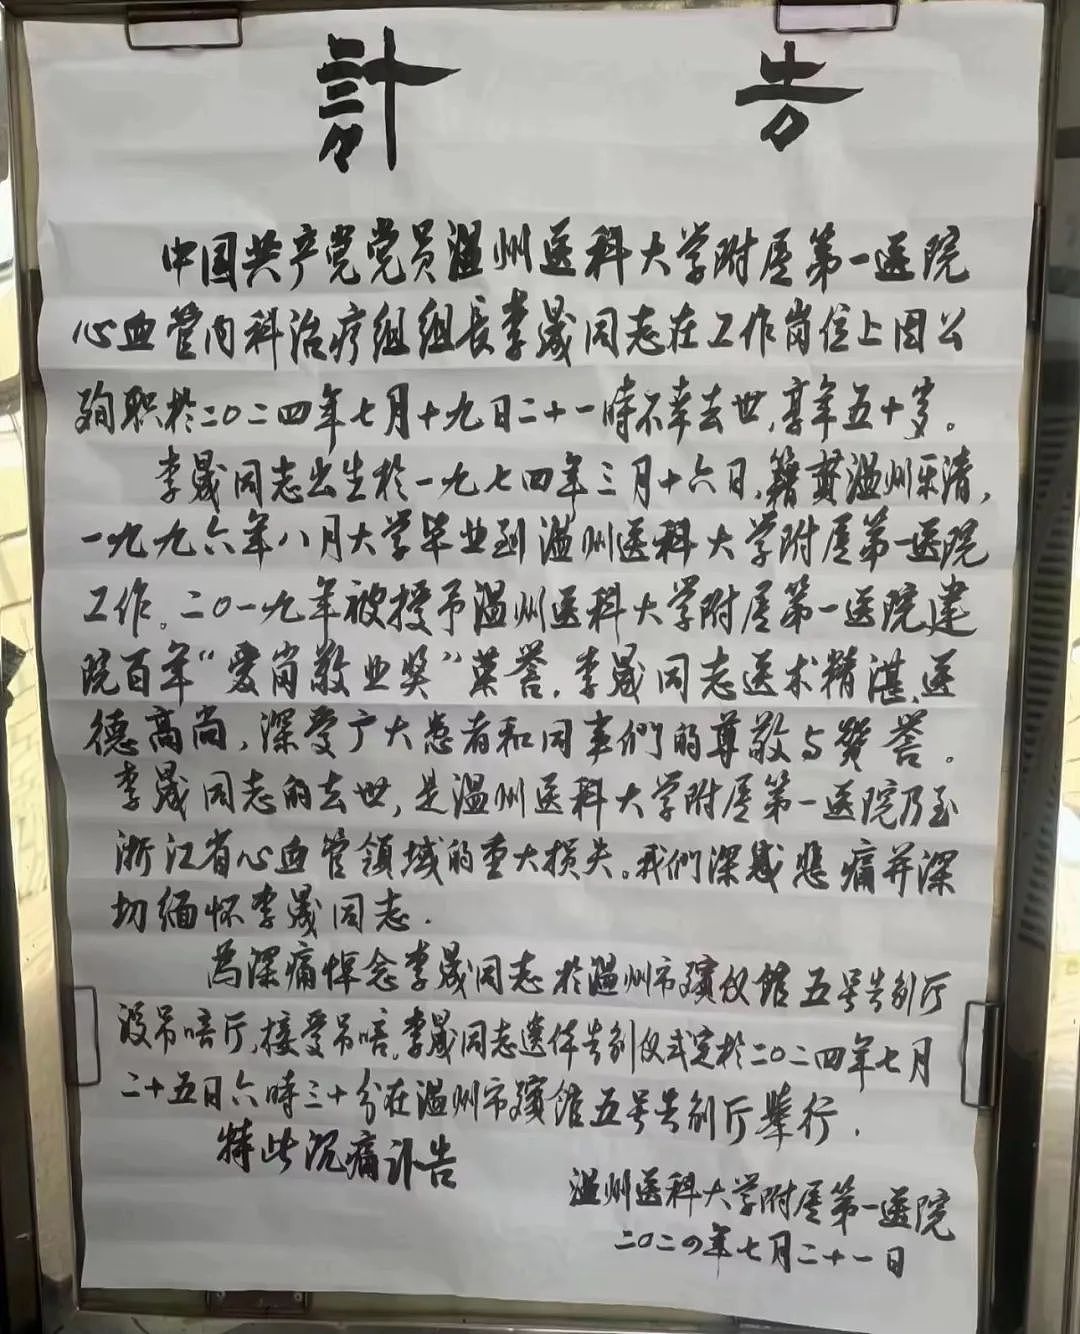 訃 告
中国共产党党员温州医科大学附属第一医院
心血管内科治疗组组长李晟同志在工作岗位上因公
殉职於二〇二四年七月十九日二十一時不幸去世,享年五十岁。
李晟同志出生於一九七四年三月十六日,籍贯温州乐清,
一九九六年八月大学毕业到温州医科大学附属第一医院
工作。二〇一九年被授予温州医科大学附属第一医院建
院百年“爱岗敬业奖”荣誉.李晟同志医术精湛,医
德高尚,深受广大患者和同事们的尊敬与赞誉。
李晟同志的去世,是温州医科大学附属第一医院乃至
浙江省心血管领域的重大损失。我們深感悲痛并深
切缅怀李晟同志.
為深痛悼念李晟同志於温州市殡仪馆五号告别厅
设吊唁厅,接受吊唁,李晟同志遗体告别仪式定於二〇二四年七月
二十五日六時三十分在温州市殡馆五号告别厅举行.
特此沉痛讣告
温州医科大学附属第一医院
二〇二四年七月二十一日